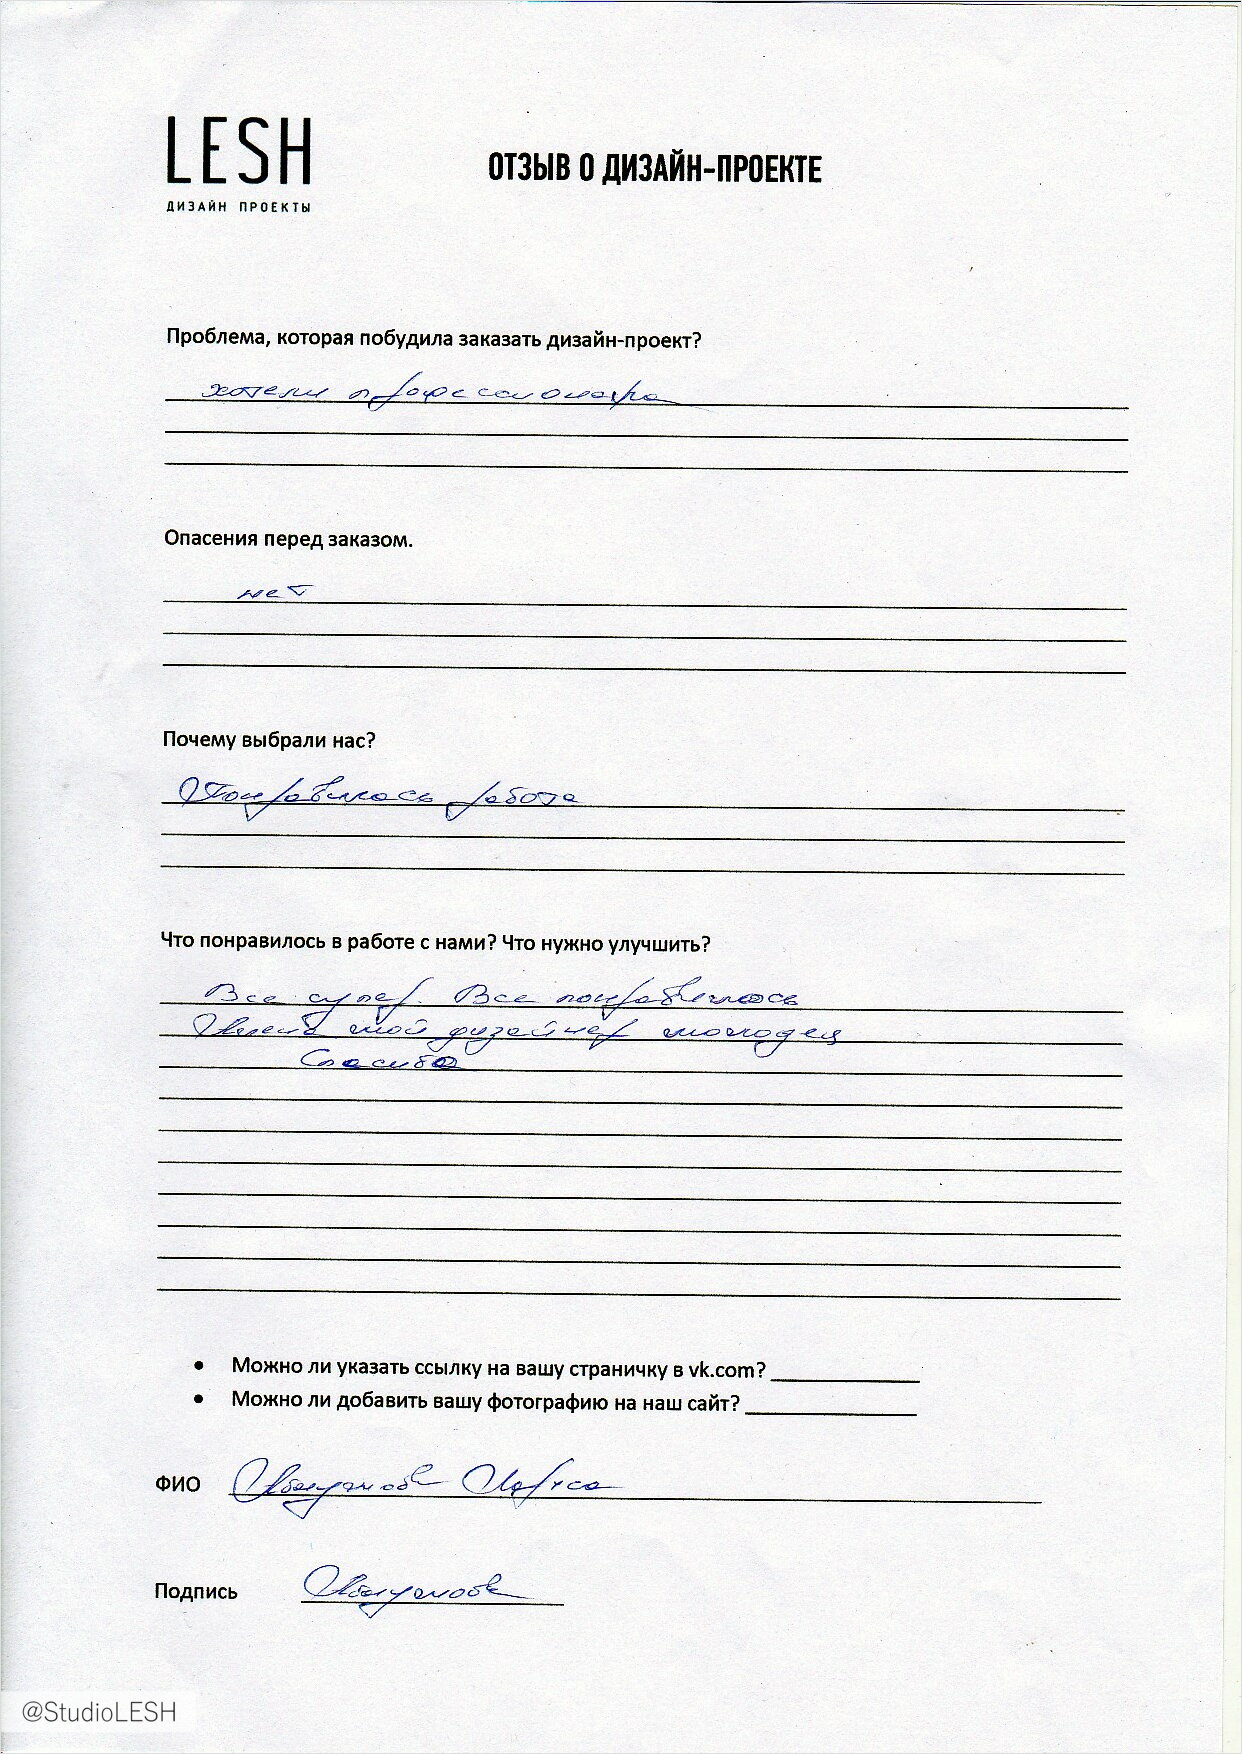 LESH
ДИЗАЙН ПРОЕКТЫ
ОТЗЫВ О ДИЗАЙН-ПРОЕКТЕ
Проблема, которая побудила заказать дизайн-проект?
хотели профессионала
Опасения перед заказом.
нет
Почему выбрали нас?
Понравилась работа
Что понравилось в работе с нами? Что нужно улучшить?
Все супер. Все понравилось
мой дизайнер молодец
Спасибо
• Можно ли указать ссылку на вашу страничку в vk.com?
• Можно ли добавить вашу фотографию на наш сайт?
ФИО
Подпись
@StudioLESH